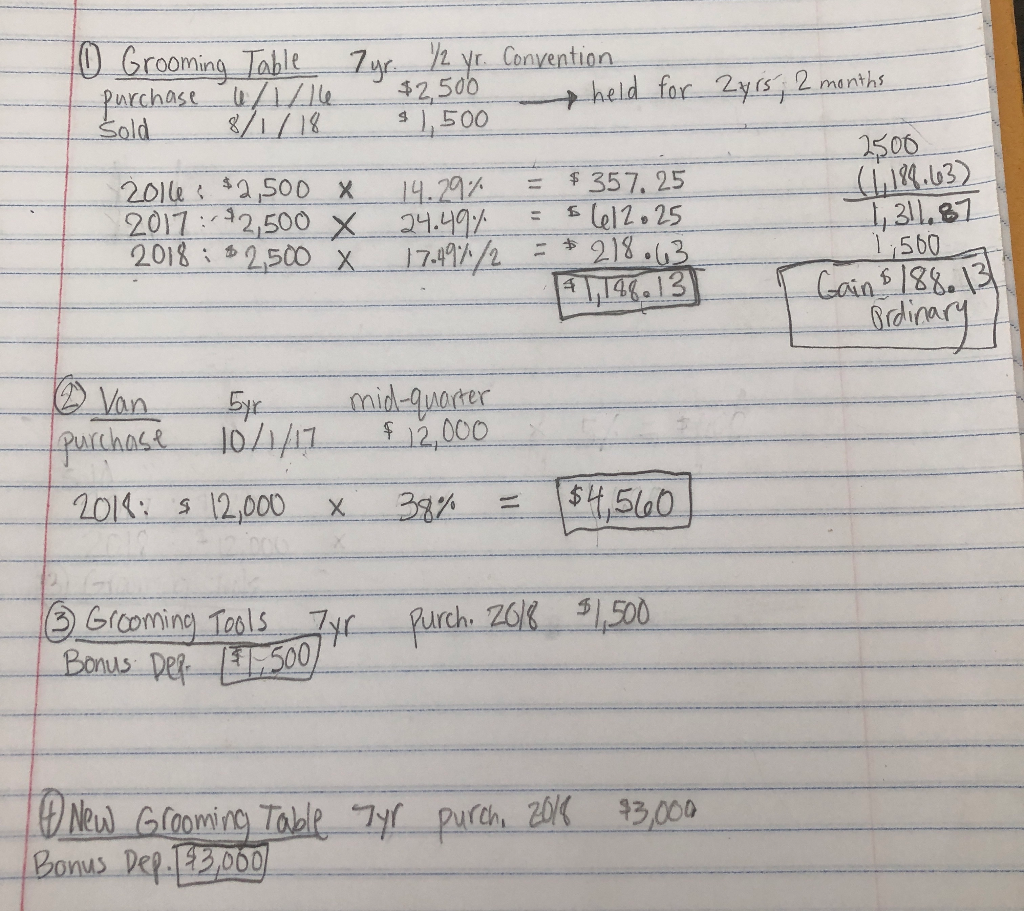 ① Grooming Table 7yr. 1/2 yr. Convention
purchase 6/1/16 $2,500 → held for 2yrs, 2 months
Sold 8/1/18 $1,500
2016: $2,500 x 14.29% = $357.25
2017: $2,500 x 24.49% = $612.25
2018: $2,500 x 17.49%/2 = $218.63
$1,188.13
2500
(1,188.63)
1,311.87
1,500
Gain $188.13
Ordinary
② Van 5yr mid-quarter
purchase 10/1/17 $12,000
2018: $12,000 x 38% = $4,560
③ Grooming Tools 7yr purch. 2018 $1,500
Bonus Dep. $1,500
④ New Grooming Table 7yr purch. 2018 $3,000
Bonus Dep. $3,000